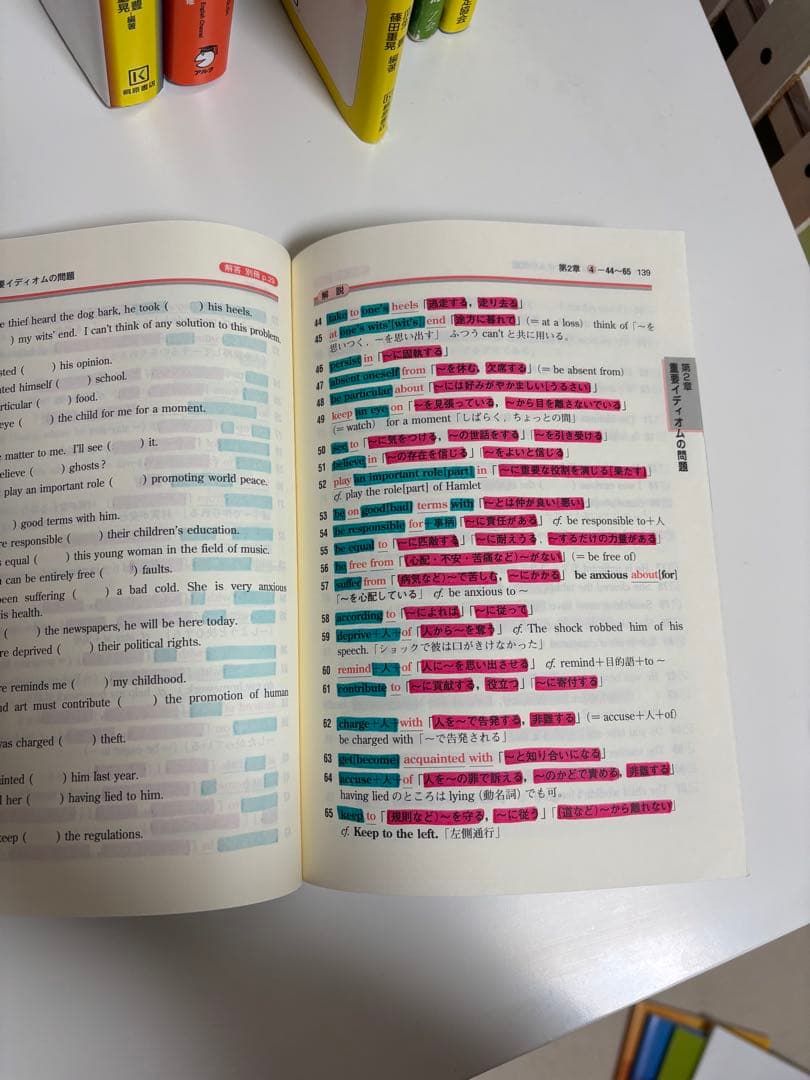 豊
晃
編著
桐原書店
English Channel
アルク
篠田重晃
編著
要イディオムの問題
解答 別冊 p.29
e thief heard the dog bark, he took ( ) his heels.
) my wits' end. I can't think of any solution to this problem.
sted ( ) his opinion.
ted himself ( ) school.
rticular ( ) food.
eye ( ) the child for me for a moment.
matter to me. I'll see ( ) it.
elieve ( ) ghosts?
play an important role ( ) promoting world peace.
) good terms with him.
re responsible ( ) their children's education.
s equal ( ) this young woman in the field of music.
can be entirely free ( ) faults.
een suffering ( ) a bad cold. She is very anxious
is health.
( ) the newspapers, he will be here today.
re deprived ( ) their political rights.
re reminds me ( ) my childhood.
nd art must contribute ( ) the promotion of human
as charged ( ) theft.
ainted ( ) him last year.
l her ( ) having lied to him.
keep ( ) the regulations.
第2章 ④－44～65 139
解 説
44 take to one's heels「逃走する，走り去る」
45 at one's wits'[wit's] end「途方に暮れて」(= at a loss) think of「～を
思いつく，～を思い出す」 ふつう can't と共に用いる。
46 persist in「～に固執する」
47 absent oneself from「～を休む，欠席する」(= be absent from)
48 be particular about「～には好みがやかましい[うるさい]」
49 keep an eye on「～を見張っている，～から目を離さないでいる」
(= watch) for a moment「しばらく，ちょっとの間」
50 see to「～に気をつける，～の世話をする」「～を引き受ける」
51 believe in「～の存在を信じる」「～をよいと信じる」
52 play an important role[part] in「～に重要な役割を演じる[果たす]」
cf. play the role[part] of Hamlet
53 be on good[bad] terms with「～とは仲が良い[悪い]」
54 be responsible for＋事柄「～に責任がある」 cf. be responsible to＋人
55 be equal to「～に匹敵する」「～に耐えうる，～するだけの力量がある」
56 be free from「(心配・不安・苦痛など)～がない」(= be free of)
57 suffer from「(病気など)～で苦しむ，～にかかる」 be anxious about[for]
「～を心配している」 cf. be anxious to ～
58 according to「～によれば」「～に従って」
59 deprive＋人＋of「人から～を奪う」 cf. The shock robbed him of his
speech.「ショックで彼は口がきけなかった」
60 remind＋人＋of「人に～を思い出させる」 cf. remind＋目的語＋to ～
61 contribute to「～に貢献する，役立つ」「～に寄付する」
62 charge＋人＋with「人を～で告発する，非難する」(= accuse＋人＋of)
be charged with「～で告発される」
63 get[become] acquainted with「～と知り合いになる」
64 accuse＋人＋of「人を～の罪で訴える，～のかどで責める，非難する」
having lied のところは lying (動名詞) でも可。
65 keep to「(規則など)～を守る，～に従う」「(道など)～から離れない」
cf. Keep to the left.「左側通行」
第2章
重要イディオムの問題